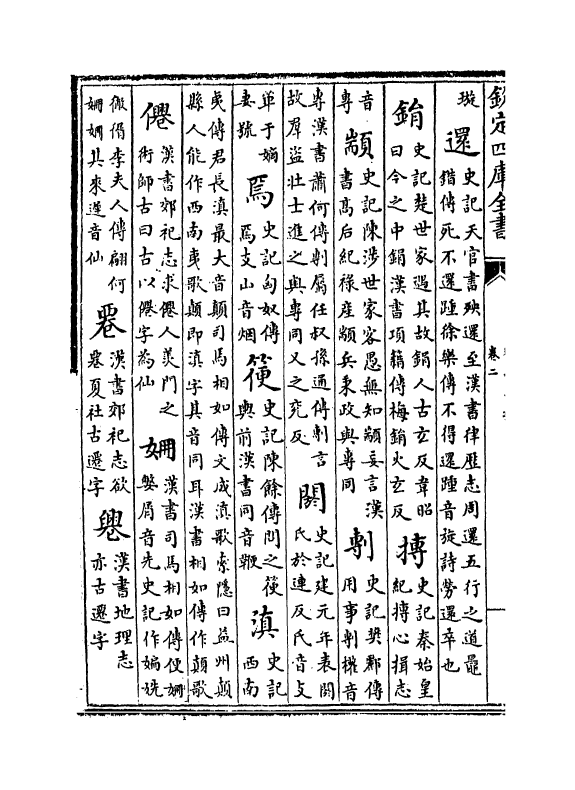 欽定四庫全書
卷二
璇 還 史記天官書殃還至漢書律歴志周還五行之道鼂錯傳死不還踵徐樂傳不得還踵音旋詩勞還卒也
鋗 史記楚世家遇其故鋗人古玄反韋昭曰今之中鋗漢書項籍傳梅鋗火玄反 摶 史記秦始皇紀摶心揖志
音專 顓 史記陳渉世家客愚無知顓妄言漢書髙后紀祿産顓兵秉政與專同 剸 史記樊酈傳用事剸權音
專漢書蕭何傳剸屬任叔孫通傳剸言故羣盜壯士進之與專同又之兖反 閼 史記建元年表閼氏於連反氏音攴
單于嫡妻號 焉 史記匈奴傳焉支山音烟 箯 史記陳餘傳問之箯輿前漢書同音鞭 滇 史記西南
夷傳君長滇最大音顛司馬相如傳文成滇歌索隱曰益州顛縣人能作西南夷歌顛即滇字其音同耳漢書相如傳作顛歌
僊 漢書郊祀志求僊人羡門之術師古曰古以僊字為仙 姍 漢書司馬相如傳便姍嫳屑音先史記作媥姺
㣲偝李夫人傳翩何姍姍其來遲音仙 䙴 漢書郊祀志欲䙴夏社古遷字 𨙲 漢書地理志亦古遷字